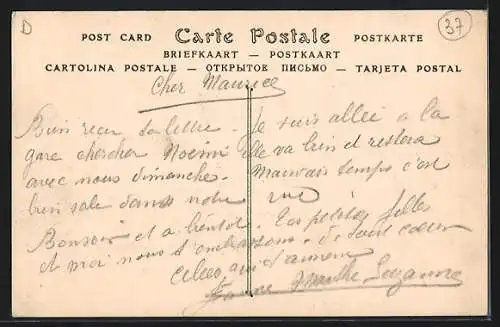 D
37
POST CARD Carte Postale POSTKARTE
BRIEFKAART — POSTKAART
CARTOLINA POSTALE — ОТКРЫТОЕ ПИСЬМО — TARJETA POSTAL
Cher Maurice
Bien reçu ta lettre. Je suis allée a la
gare chercher Noémi elle va bien et restera
avec nous dimanche. Mauvais temps c'est
bien sale dans notre rue
Bonsoir et a bientôt. Tes petites filles
et moi nous t'embrassons de tout coeur
Celles qui t'aiment
Jeanne Marthe Suzanne